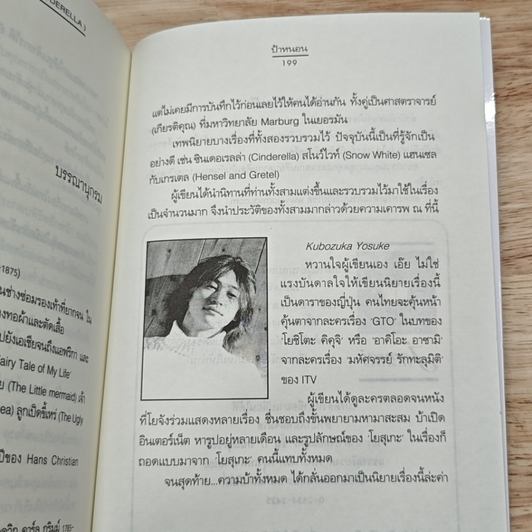 DERELLA)
บรรณานุกรม
1875)
นช่างซ่อมรองเท้าที่ยากจน ใน
องทอผ้าและตัดเสื้อ
ปยังเอเชียจนถึงแอฟริกา และ
Fairy Tale of My Life'
ย (The Little mermaid) เจ้า
ea) ลูกเป็ดขี้เหร่ (The Ugly
ปีของ Hans Christian
ป้าหนอน
199
แต่ไม่เคยมีการบันทึกไว้ก่อนเลยไว้ให้คนได้อ่านกัน ทั้งคู่เป็นศาสตราจารย์
(เกียรติคุณ) ที่มหาวิทยาลัย Marburg ในเยอรมัน
เทพนิยายบางเรื่องที่ทั้งสองรวบรวมไว้ ปัจจุบันนี้เป็นที่รู้จักเป็น
อย่างดี เช่น ซินเดอเรลล่า (Cinderella) สโนว์ไวท์ (Snow White) แฮนเซล
กับเกรเตล (Hensel and Gretel)
ผู้เขียนได้นำนิทานที่ท่านทั้งสามแต่งขึ้นและรวบรวมไว้มาใช้ในเรื่อง
เป็นจำนวนมาก จึงนำประวัติของทั้งสามมากล่าวด้วยความเคารพ ณ ที่นี้
Kubozuka Yosuke
หวานใจผู้เขียนเอง เอ๊ย ไม่ใช่
แรงบันดาลใจให้เขียนนิยายเรื่องนี้
เป็นดาราของญี่ปุ่น คนไทยจะคุ้นหน้า
คุ้นตาจากละครเรื่อง 'GTO' ในบทของ
'โยชิโตะ คิคุจิ' หรือ 'อาคิโอะ อาซามิ'
จากละครเรื่อง 'มหัศจรรย์ รักทะลุมิติ'
ของ ITV
ผู้เขียนได้ดูละครตลอดจนหนัง
ที่โยจังร่วมแสดงหลายเรื่อง ชื่นชอบถึงขั้นพยายามหามาสะสม บ้าเปิด
อินเตอร์เน็ต หารูปอยู่หลายเดือน และรูปลักษณ์ของ โยสุเกะ ในเรื่องก็
ถอดแบบมาจาก โยสุเกะ คนนี้แทบทั้งหมด
จนสุดท้าย...ความบ้าทั้งหมด ได้กลั่นออกมาเป็นนิยายเรื่องนี้ล่ะค่า